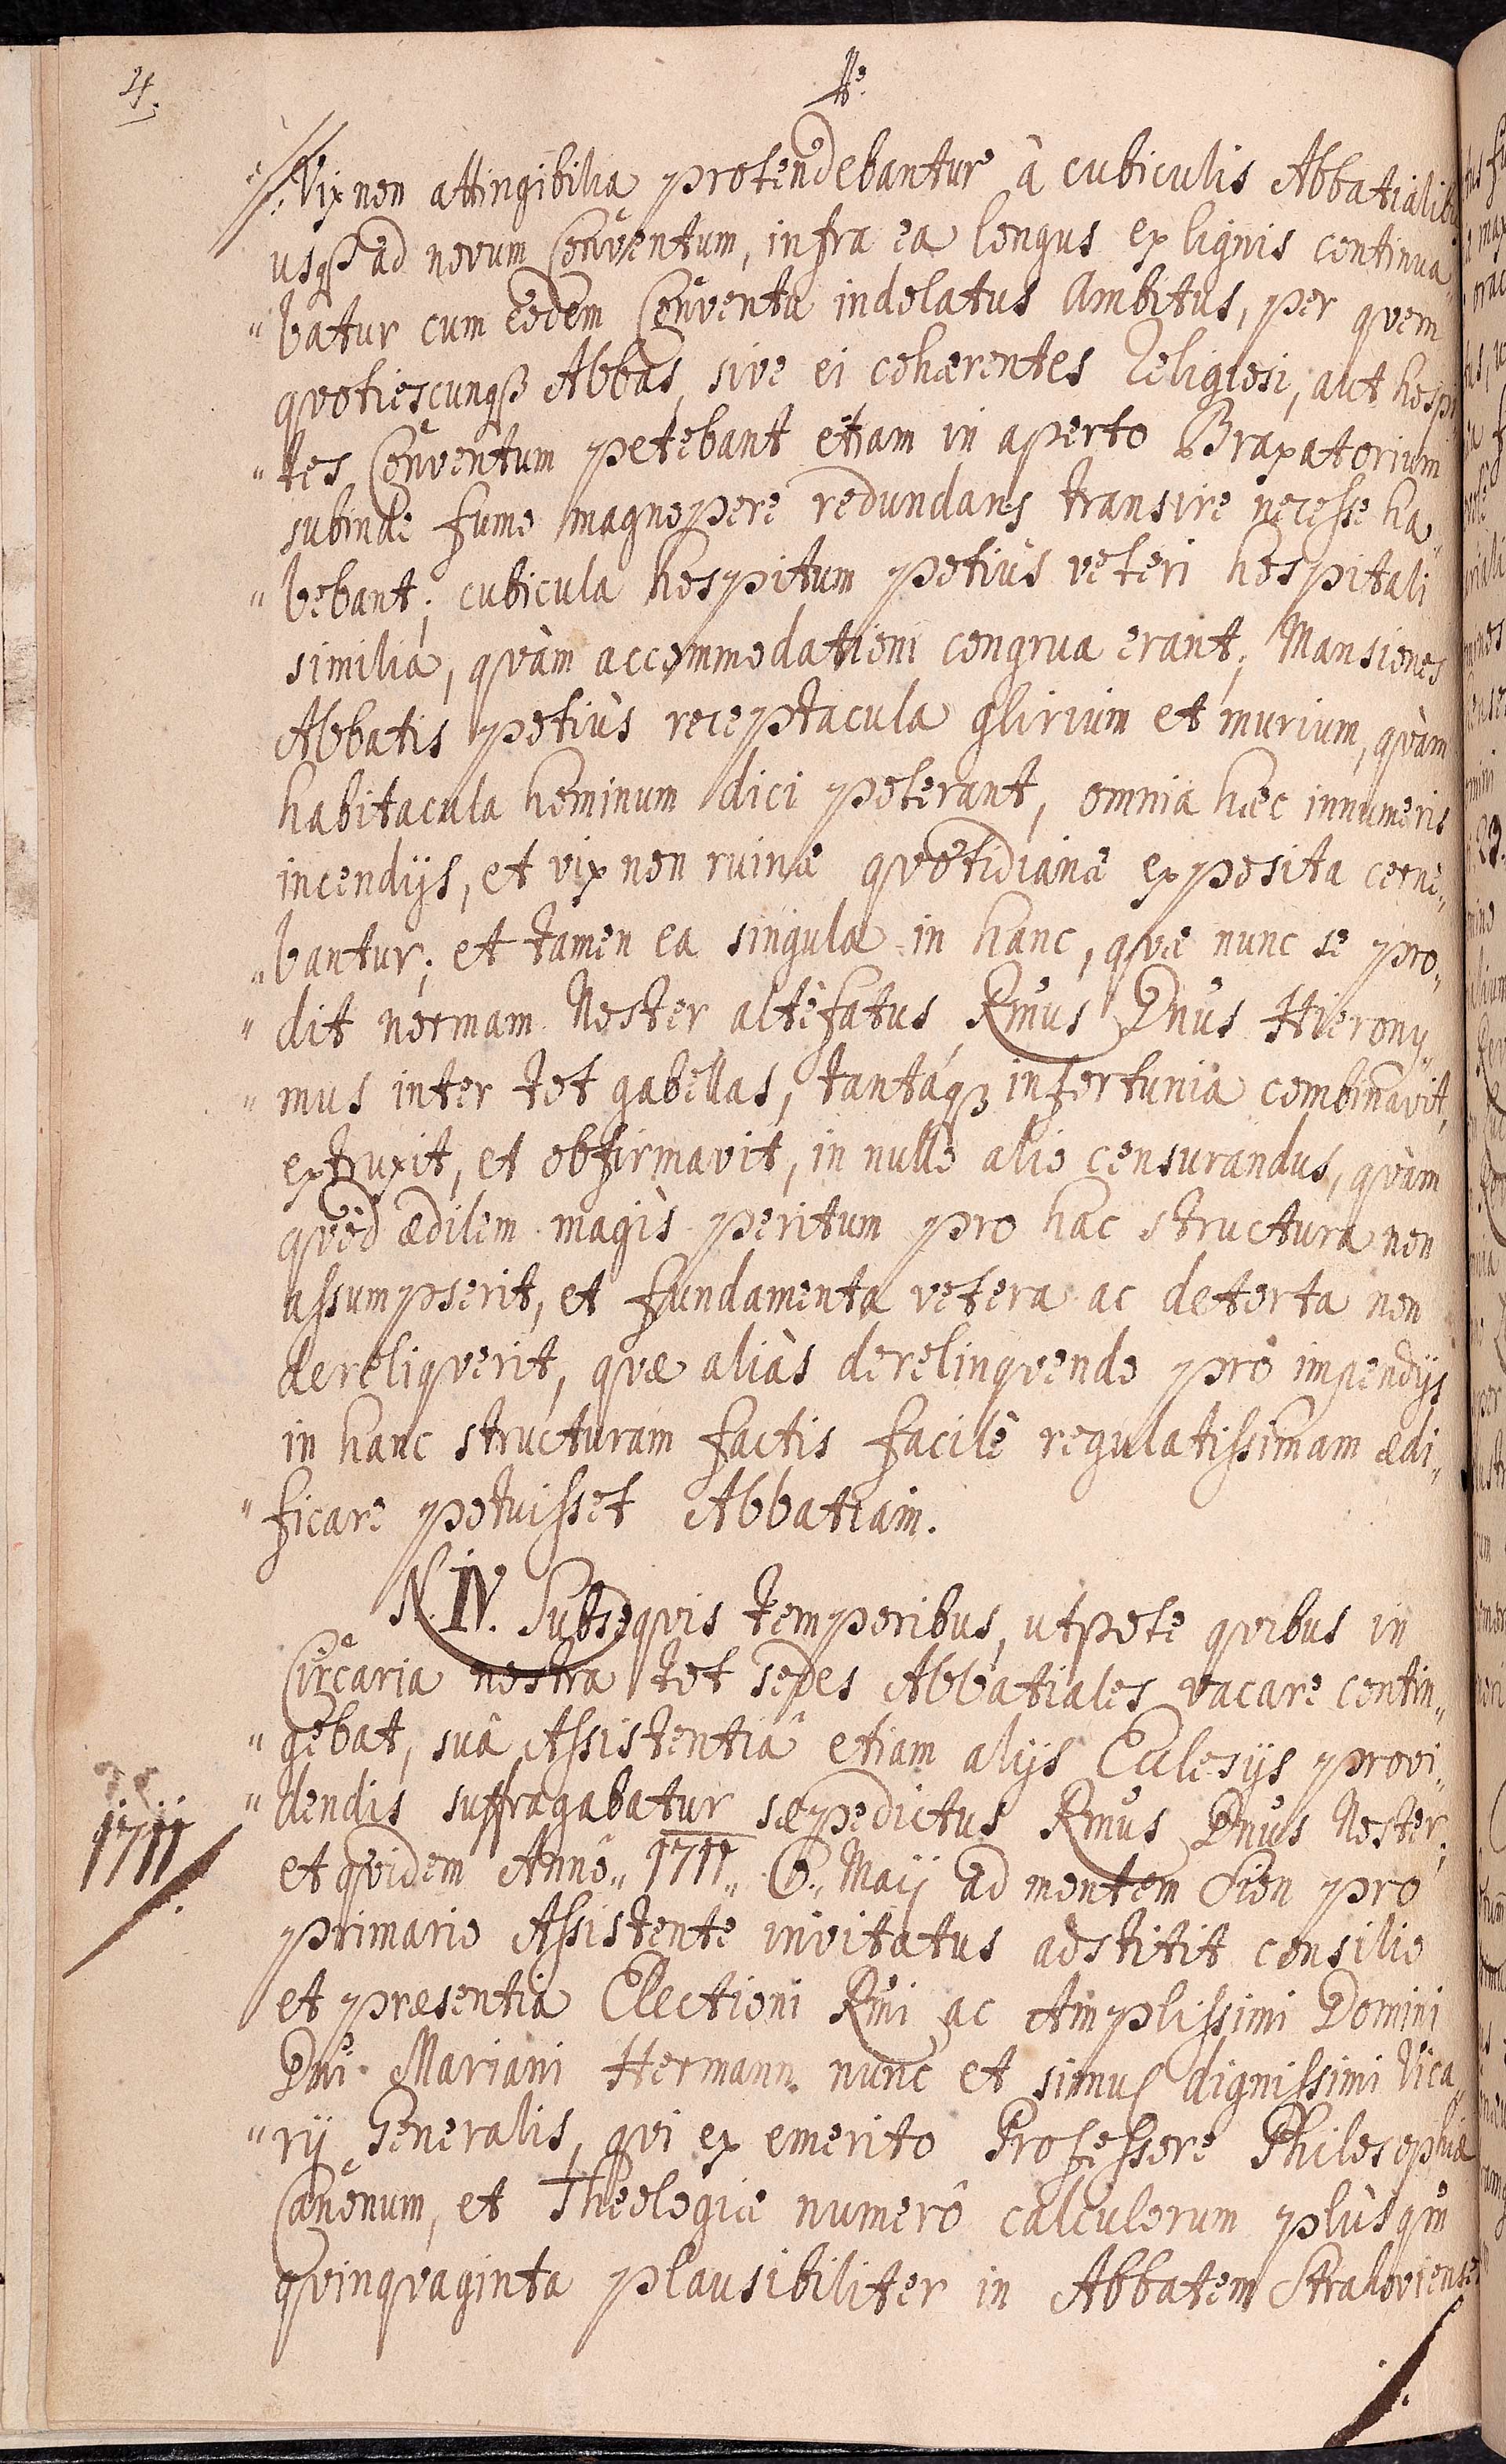 4.
Vix non attingibilia protendebantur â cubiculis Abbatialib
usqꝫ ad novum Conventum, infra ea longus ex lignis continua
"batur cum eodem Conventu indolatus Ambitus, per quem
quotiescunqꝫ Abbas, sive ei cohærentes Religiosi, aut hospi
"tes Conventum petebant etiam in aperto Braxatorium
subinde fumo magnopere redundans transire necesse ha„
"bebant; cubicula hospitum potiùs veteri hospitali
similia, quàm accommodationi congrua erant; Mansiones
Abbatis potiùs receptacula glirium et murium, quàm
habitacula hominum dici poterant, omnia hæc innumeris
incendijs, et vix non ruinæ quotidianæ exposita cerne„
„bantur; et tamen ea singula in hanc, quæ nunc se pro„
"dit normam Noster altèfatus Rm̃us Dñus Hierony„
"mus inter tot gabellas, tantáqꝫ infortunia combinavit,
extruxit, et obfirmavit, in nullo alio censurandus, quàm
quòd ædilem magis peritum pro hac structura non
assumpserit, et fundamenta vetera ac detorta non
dereliquerit, quæ aliàs derelinquendo pro impendijs
in hanc structuram factis facilè regulatissimam ædi„
"ficare potuisset Abbatiam.
N. IV. Subsequis temporibus, utpote quibus in
Circaria nostra tot sedes Abbatiales vacare contin„
"gebat, suâ Assistentiâ etiam alijs Ecclesijs provi„
"dendis suffragabatur sæpedictus Rm̃us Dñus Noster;
1711
et quidem Annô„ 1711„ 6., Maij ad montem Sion pro
primario Assistente invitatus adstitit consilio
et præsentia Electioni Rm̃i ac Amplissimi Domini
Dñi Mariani Hermann nunc et simul dignissimi Vica„
"rij Generalis, qui ex emerito Professore Philosophiæ
Canonum, et Theologiæ numerô calculorum plùs qm̃
quinquaginta plausibiliter in Abbatem Strahoviense